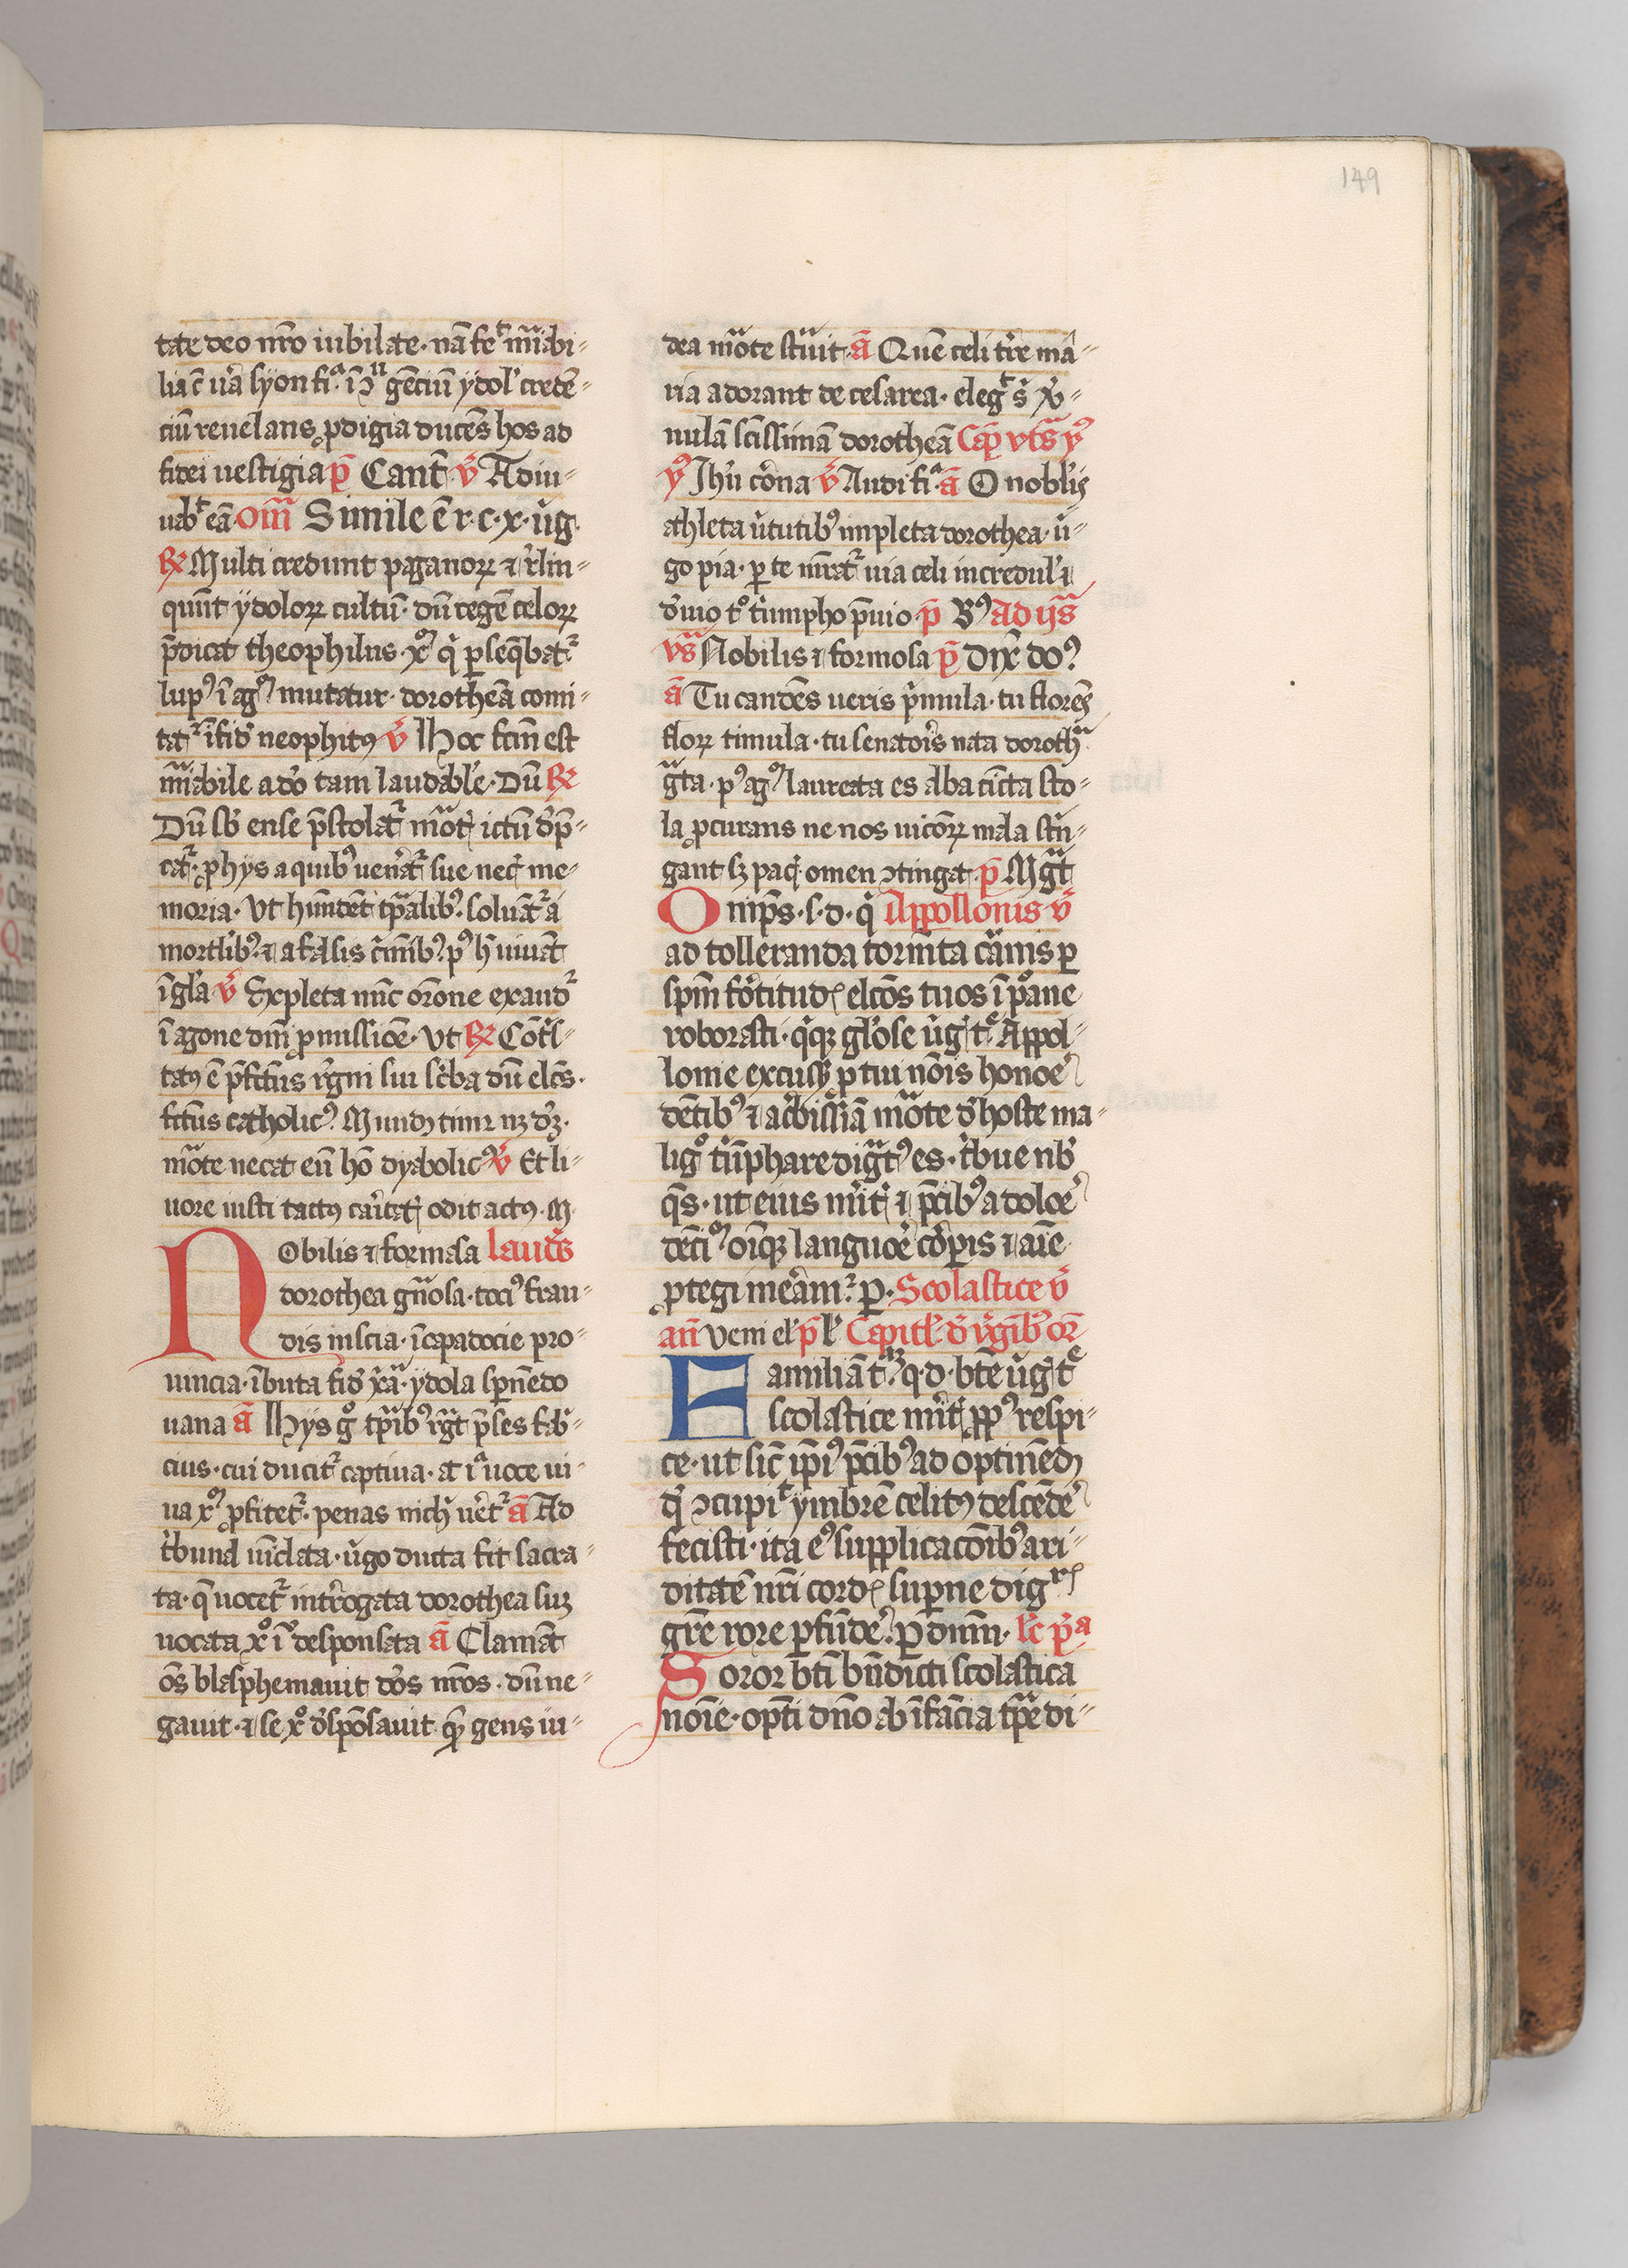 149
tate deo nr̄o iubilate · nā fet̄ mirabi-
lia ē uā syon fiᵃ · ī gētiū ydol' credē-
ciū reuelans ꝓdigia ducēs hos ad
fidei uestigia p̄ Cant̄ v̄ Adiu-
uabᵗ eā · om̄ia Simile ē r · c · x · ūg ·
℞ Multi credunt paganoꝝ ⁊ r̄lin-
quūt ydoloꝝ cultū · dū regē celoꝝ
p̄dicat theophilus · xᵒ q̇ ꝑseq̄batʳ
lupꝰ ī agᵒ mutatur · dorotheā comi-
tatʳ ī fid' neophitꝰ v̄ Hoc fcm̄ est
mirabile adō tam laudabl'e · Dū ℞
Dū sb' ense p̄stolatʳ mortꝭ ictū dp̄-
catʳ · ꝓ hys a quibꝰ uen̄atʳ sue necꝭ me-
moria · Vt hūdēt tp̄alibꝰ · soluātʳ a
mortl'ibꝰ · ⁊ a falsis c̄mībꝰ · pꝰ h̄ uiuāt
ī gl'a v̄ Expleta nūc or̄one exaudʳ
ī agone dn̄i ꝓmissiōe · Vt ℞ Cōts-
tatꝰ ē p̄fectus r̄gni sui sc̄ba dū elc̄s ·
fctūs catholicꝰ · Mundꝰ timr
morte necat eū hō dyabolicꝰ v̄ Et li-
uore iusti tactꝰ cāitatꝭ odit actꝰ · M
Nobilis ⁊ formosa laud's
dorothea gn̄osa · tociꝰ frau-
dis inscia · ī capadocie pro-
uincia · ībuta fid' xᵃ · ydola sp̄nēdo
uana ā Hys gᵒ tp̄ibꝰ r̄gat p̄ses fab-
cius · cui ducitʳ captiua · at iᵃ uoce ui-
ua xᵒ ꝓfitetʳ · penas nichꝭ uētʳ ā Ad
t'bunal uīclata · ūgo ducta fit sacra-
ta · q̄ uocetʳ int̄rogata dorothea suꝫ
uocata xᵒ iᵒ desponsata ā Clamāt
oēs blasphemauit d'os nr̄os · dū ne-
gauit · ⁊ se xᵒ d'spōsauit gens iu-
dea morte st̄uit · ā Quē celi t̄re ma-
ria adorant de cesarea · elegᵗ s' xᵒ-
nulā sc̄issimā dorotheā Cap̄ vts̄ yᵒ
yᵒ Jh'u c̄ona v̄ Audi fiᵃ · ā O nobl'is
athleta ūtutibꝰ impleta dorothea · ū-
go pia · per te mr̄atʳ uia celi incredul' ⁊
d'uio tᵒ tūmpho p̄uio p̄ Bꝰ Ad ijᵃˢ
vs̄ Nobilis ⁊ formosa p̄ Dix̄ do?
ā Tu candēs ueris p̄mula · tu florēs
floꝝ timula · tu senatoris nata dorothᵃ
gᵃta · pꝰ agᵒ laureata es alba cīcta sto-
la ꝓcurans ne nos uicioꝝ mala stn̄-
gant sꝫ pacꝭ omen ↄtingat p̄ Mgᵃt
Onip̄s · s · d · q̇ Appollonis v̄
ad tolleranda torm̄ta cārnis ꝑ
sp̄m fortitudꝭ elcōs tuos ī pꝰane
roborasti · q̇qꝫ gl'ose ūgꝭ tᵉ Appol-
lonie excusſꝭ ꝓ tui nōis honoē
dētibꝰ ⁊ acbissīa morte d' hoste ma-
ligᵒ tūmphare digᵃtꝰ es · t'bue nb'
q̄s · ut eius mītꝭ ⁊ p̄cibꝰ a dolōe
dētiū oīqꝫ languōe cōrꝑis ⁊ aīe
ꝓtegi mēamʳ · ꝑ · Scolastice v̄
an̄ Veni el' p̄ l' Capitl' d' ūgībꝰ or̄
Familiā tᵃ q · d · bt̄e ūgꝭ tᵉ
scolastice mītꝭ ꝓpꝰ respi-
ce · ut sic̄ ip̄iꝰ p̄cibꝰ ad optinēdꝭ
qᵈ ↄcupiᵗ ymbrē celitꝰ descēdē
fecisti · ita eꝰ supplicacōibꝰ ari-
ditatē nr̄i cordꝭ suꝑne dig
gr̄e rore ꝑfūdē · ꝑ dnm̄ · l'c p̄ᵃ
Soror bt̄i bn̄dicti scolastica
noīe · op̄ti dn̄o ab īfācia tp̄e di-